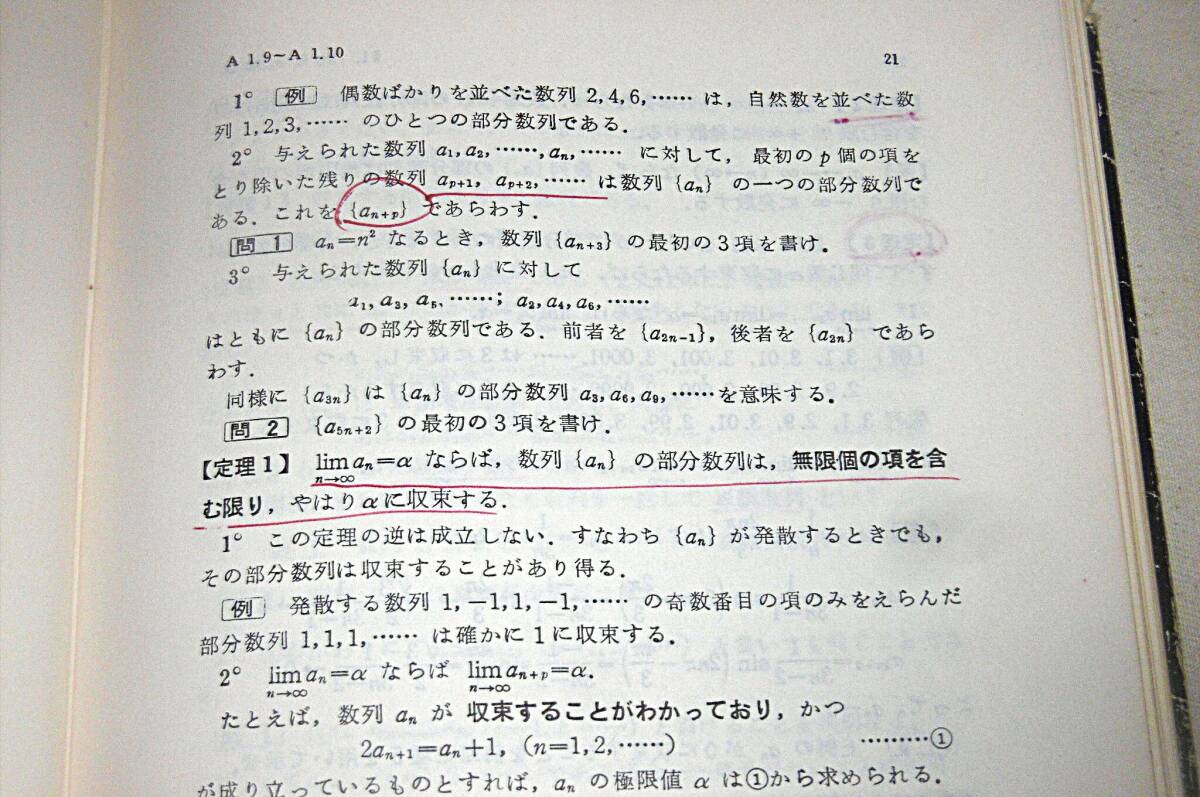 A 1.9～A 1.10
21
1° 例 偶数ばかりを並べた数列 2, 4, 6, …… は，自然数を並べた数
列 1, 2, 3, …… のひとつの部分数列である．
2° 与えられた数列 a₁, a₂, ……, aₙ, …… に対して，最初の p 個の項を
とり除いた残りの数列 aₚ₊₁, aₚ₊₂, …… は数列 {aₙ} の一つの部分数列で
ある．これを {aₙ₊ₚ} であらわす．
問 1 aₙ=n² なるとき，数列 {aₙ₊₃} の最初の 3 項を書け．
3° 与えられた数列 {aₙ} に対して
a₁, a₃, a₅, ……; a₂, a₄, a₆, ……
はともに {aₙ} の部分数列である．前者を {a₂ₙ₋₁}，後者を {a₂ₙ} であら
わす．
同様に {a₃ₙ} は {aₙ} の部分数列 a₃, a₆, a₉, …… を意味する．
問 2 {a₅ₙ₊₂} の最初の 3 項を書け．
【定理 1】 lim aₙ=α ならば，数列 {aₙ} の部分数列は，無限個の項を含
n→∞
む限り，やはり α に収束する．
1° この定理の逆は成立しない．すなわち {aₙ} が発散するときでも，
その部分数列は収束することがあり得る．
例 発散する数列 1, −1, 1, −1, …… の奇数番目の項のみをえらんだ
部分数列 1, 1, 1, …… は確かに 1 に収束する．
2° lim aₙ=α ならば lim aₙ₊ₚ=α．
n→∞ n→∞
たとえば，数列 aₙ が 収束することがわかっており，かつ
2aₙ₊₁=aₙ+1, (n=1, 2, ……) ………①
が成り立っているものとすれば，aₙ の極限値 α は①から求められる．